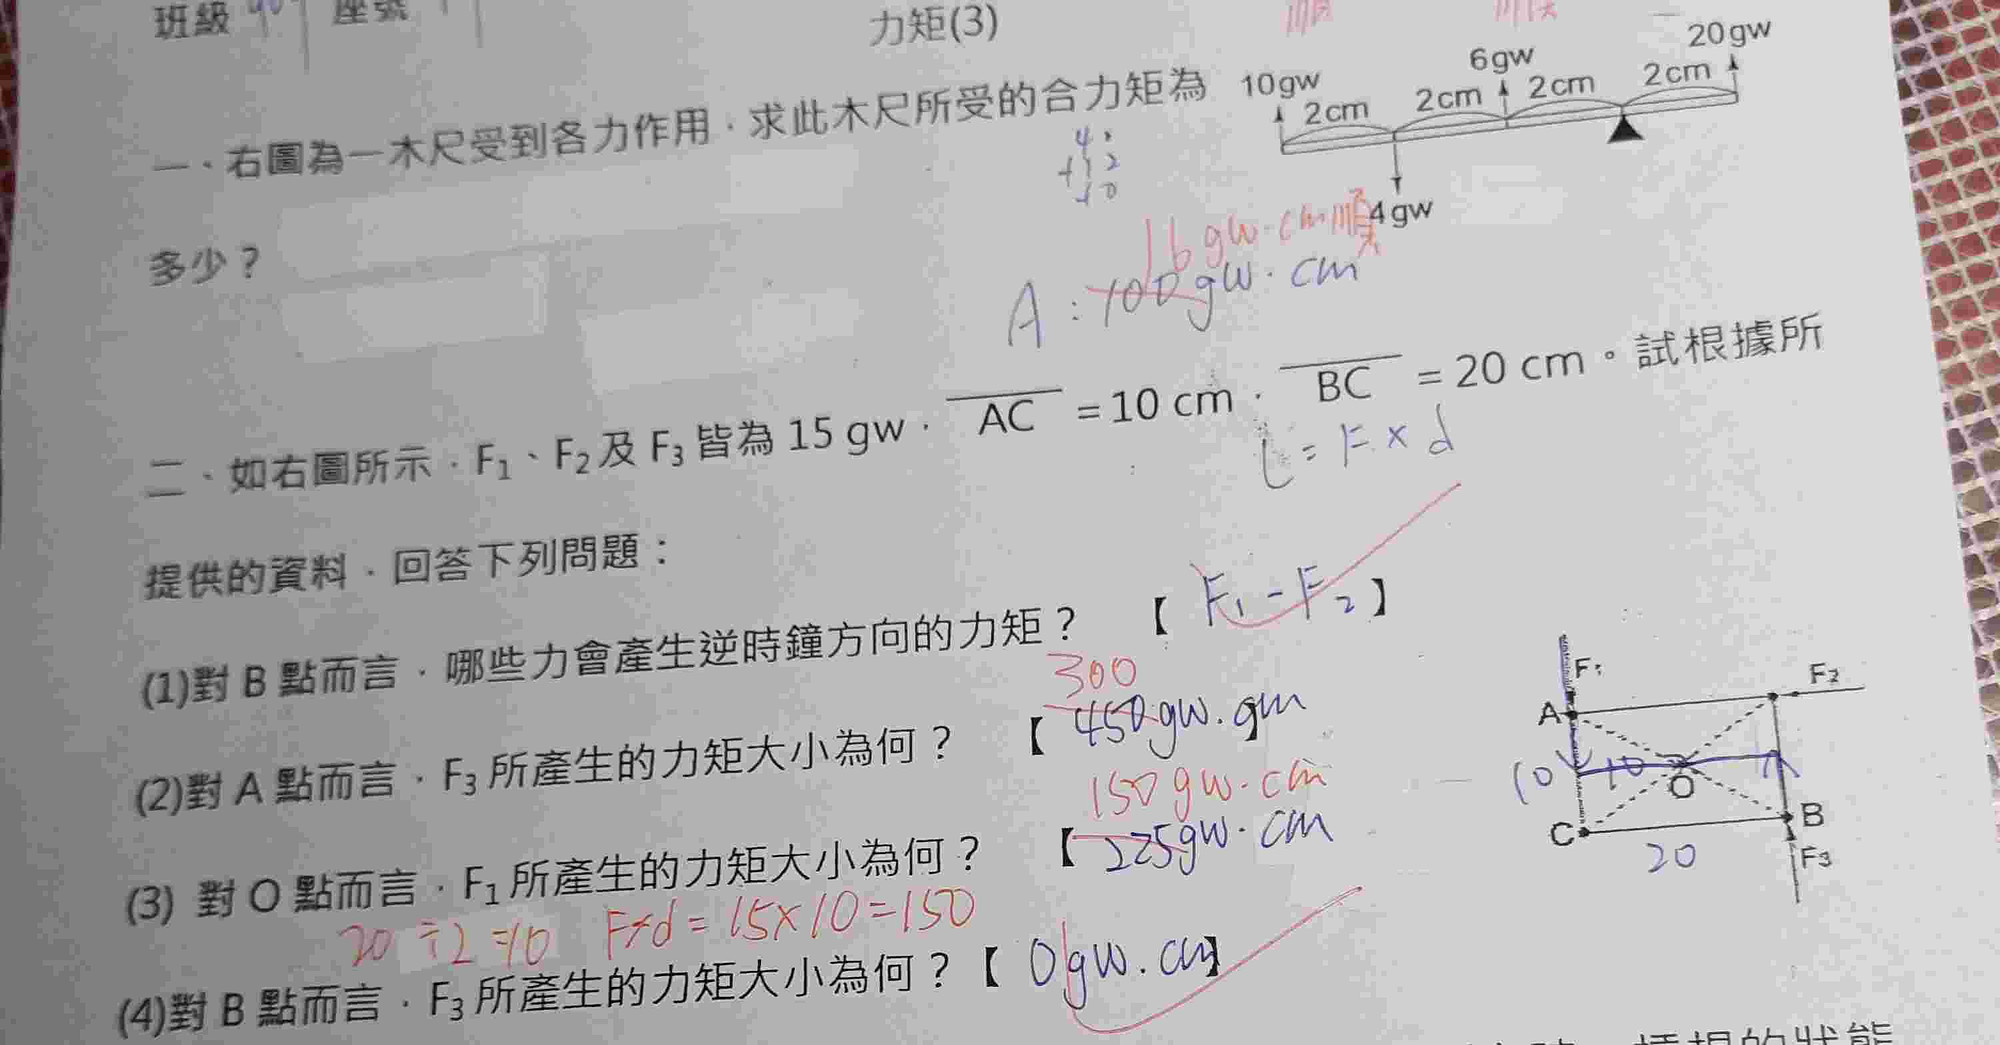 班級 座號
力矩(3)
一、右圖為一木尺受到各力作用，求此木尺所受的合力矩為
10gw 2cm 2cm 6gw 2cm 2cm 20gw
4gw
4
+12
10
多少？
16gw.cm順
A：100gw.cm
二、如右圖所示，F₁、F₂及 F₃ 皆為 15 gw，AC =10 cm，BC =20 cm。試根據所
L=F×d
提供的資料，回答下列問題：
(1)對 B 點而言，哪些力會產生逆時鐘方向的力矩？ 【F₁-F₂】
300
(2)對 A 點而言，F₃ 所產生的力矩大小為何？ 【450gw.gm】
150gw.cm
(3) 對 O 點而言，F₁ 所產生的力矩大小為何？ 【225gw.cm】
20÷2=10 F×d=15×10=150
(4)對 B 點而言，F₃ 所產生的力矩大小為何？【0gw.cm】
F₁ F₂
A
10 10 O
C B
20 F₃